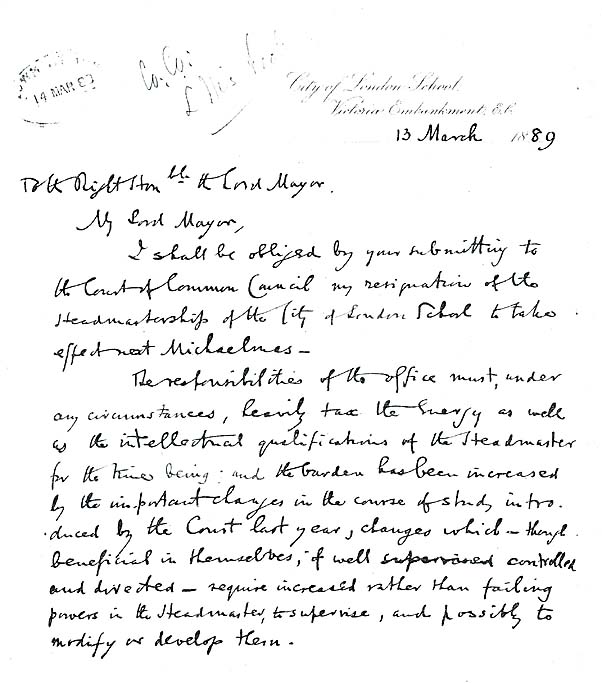 14 MAR 89
Co. Co:
City of London School,
Victoria Embankment, E.C.
13 March 1889
To the Right Hon ble the Lord Mayor.
My Lord Mayor,
I shall be obliged by your submitting to
the Court of Common Council my resignation of the
Headmastership of the City of London School to take
effect next Michaelmas —
The responsibilities of the office must, under
any circumstances, heavily tax the Energy as well
as the intellectual qualifications of the Headmaster
for the time being; and the burden has been increased
by the important changes in the course of study intro-
duced by the Court last year, changes which — though
beneficial in themselves, if well supervised controlled
and directed — require increased rather than failing
powers in the Headmaster, to supervise, and possibly to
modify or develop them.